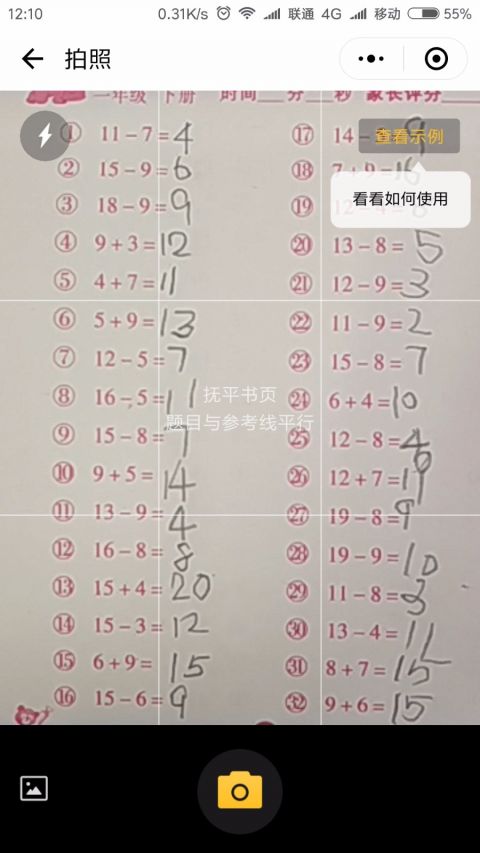 12:10 0.31K/s 联通 4G 移动 55%
拍照
一年级 下册 时间__分__秒 家长评分
① 11-7=4
② 15-9=6
③ 18-9=9
④ 9+3=12
⑤ 4+7=11
⑥ 5+9=13
⑦ 12-5=7
⑧ 16-5=11
⑨ 15-8=7
⑩ 9+5=14
⑪ 13-9=4
⑫ 16-8=8
⑬ 15+4=20
⑭ 15-3=12
⑮ 6+9=15
⑯ 15-6=9
⑰ 14-
查看示例
⑱ 7+9=16
看看如何使用
⑲
⑳ 13-8=5
㉑ 12-9=3
㉒ 11-9=2
㉓ 15-8=7
抚平书页
题目与参考线平行
㉔ 6+4=10
㉕ 12-8=4
㉖ 12+7=19
㉗ 19-8=9
㉘ 19-9=10
㉙ 11-8=3
㉚ 13-4=11
㉛ 8+7=15
㉜ 9+6=15